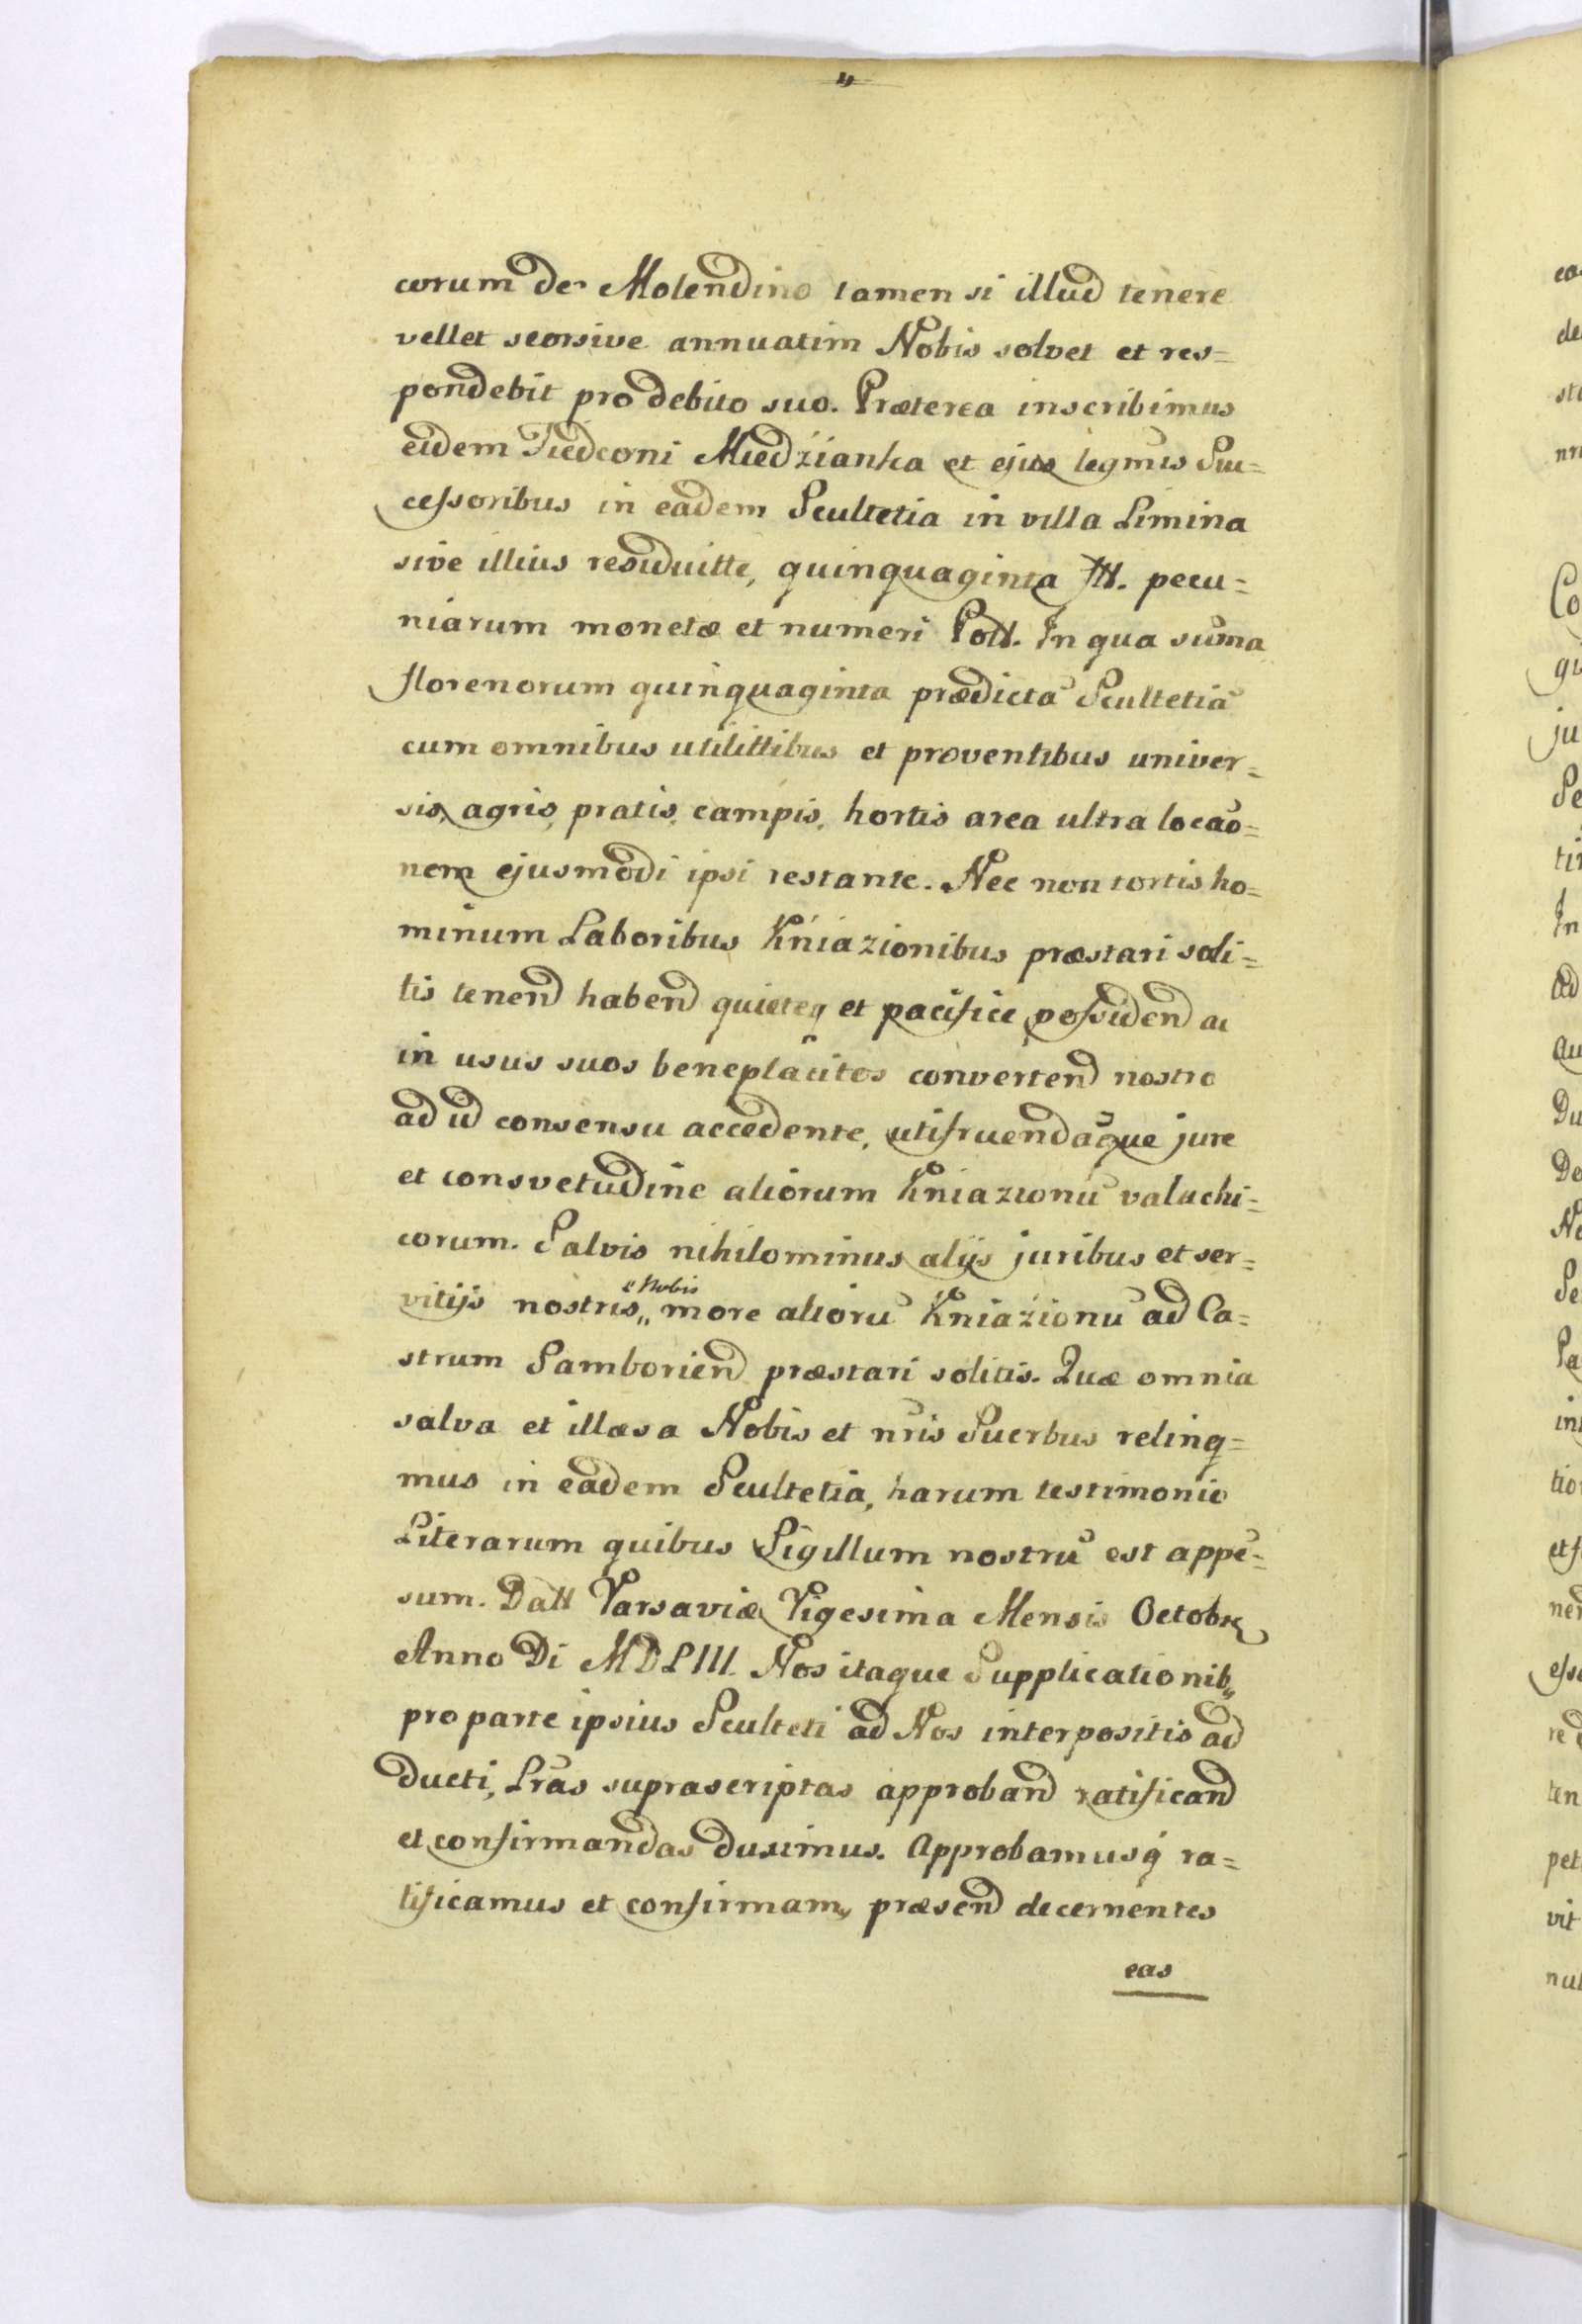 corum de Molendino tamen si illud tenere
vellet seorsive annuatim Nobis solvet et res=
pondebit pro debito suo. Præterea inscribimus
eidem Fiedconi Miedzianka et ejus legmis Suc=
cessoribus in eadem Scultetia in villa Limina
sive illius residuitte, quinquaginta fll. pecu=
niarum monetæ et numeri Poll. In qua suma
florenorum quinquaginta prædicta Scultetia
cum omnibus utilittibus et proventibus univer=
sis, agris, pratis, campis, hortis area ultra locao=
nem ejusmodi ipsi restante. Nec non tortis ho=
minum Laboribus Kniazionibus præstari soli=
tis tenend habend quieteq et pacifice possidend ac
in usus suos beneplacitos convertend nostro
ad id consensu accedente, utifruendaque jure
et consvetudine aliorum Kniazionū valachi=
corum. Salvis nihilominus alijs juribus et ser=
vitijs nostris,, more aliorū Kniazionū ad Ca=
e Nobis
strum Samborien præstari solitis. Quæ omnia
salva et illæsa Nobis et nris Sucrbus relinq=
mus in eadem Scultetia, harum testimonio
Literarum quibus Sigillum nostrū est appē=
sum. Datt Varsaviæ Vigesima Mensis Octobr
Anno Di MDLIII. Nos itaque Supplicationib,,
pro parte ipsius Sculteti ad Nos interpositis ad
ducti, Lras suprascriptas approband ratificand
et confirmandas duximus. Approbamusq ra=
tificamus et confirmam, præsend decernentes
eas